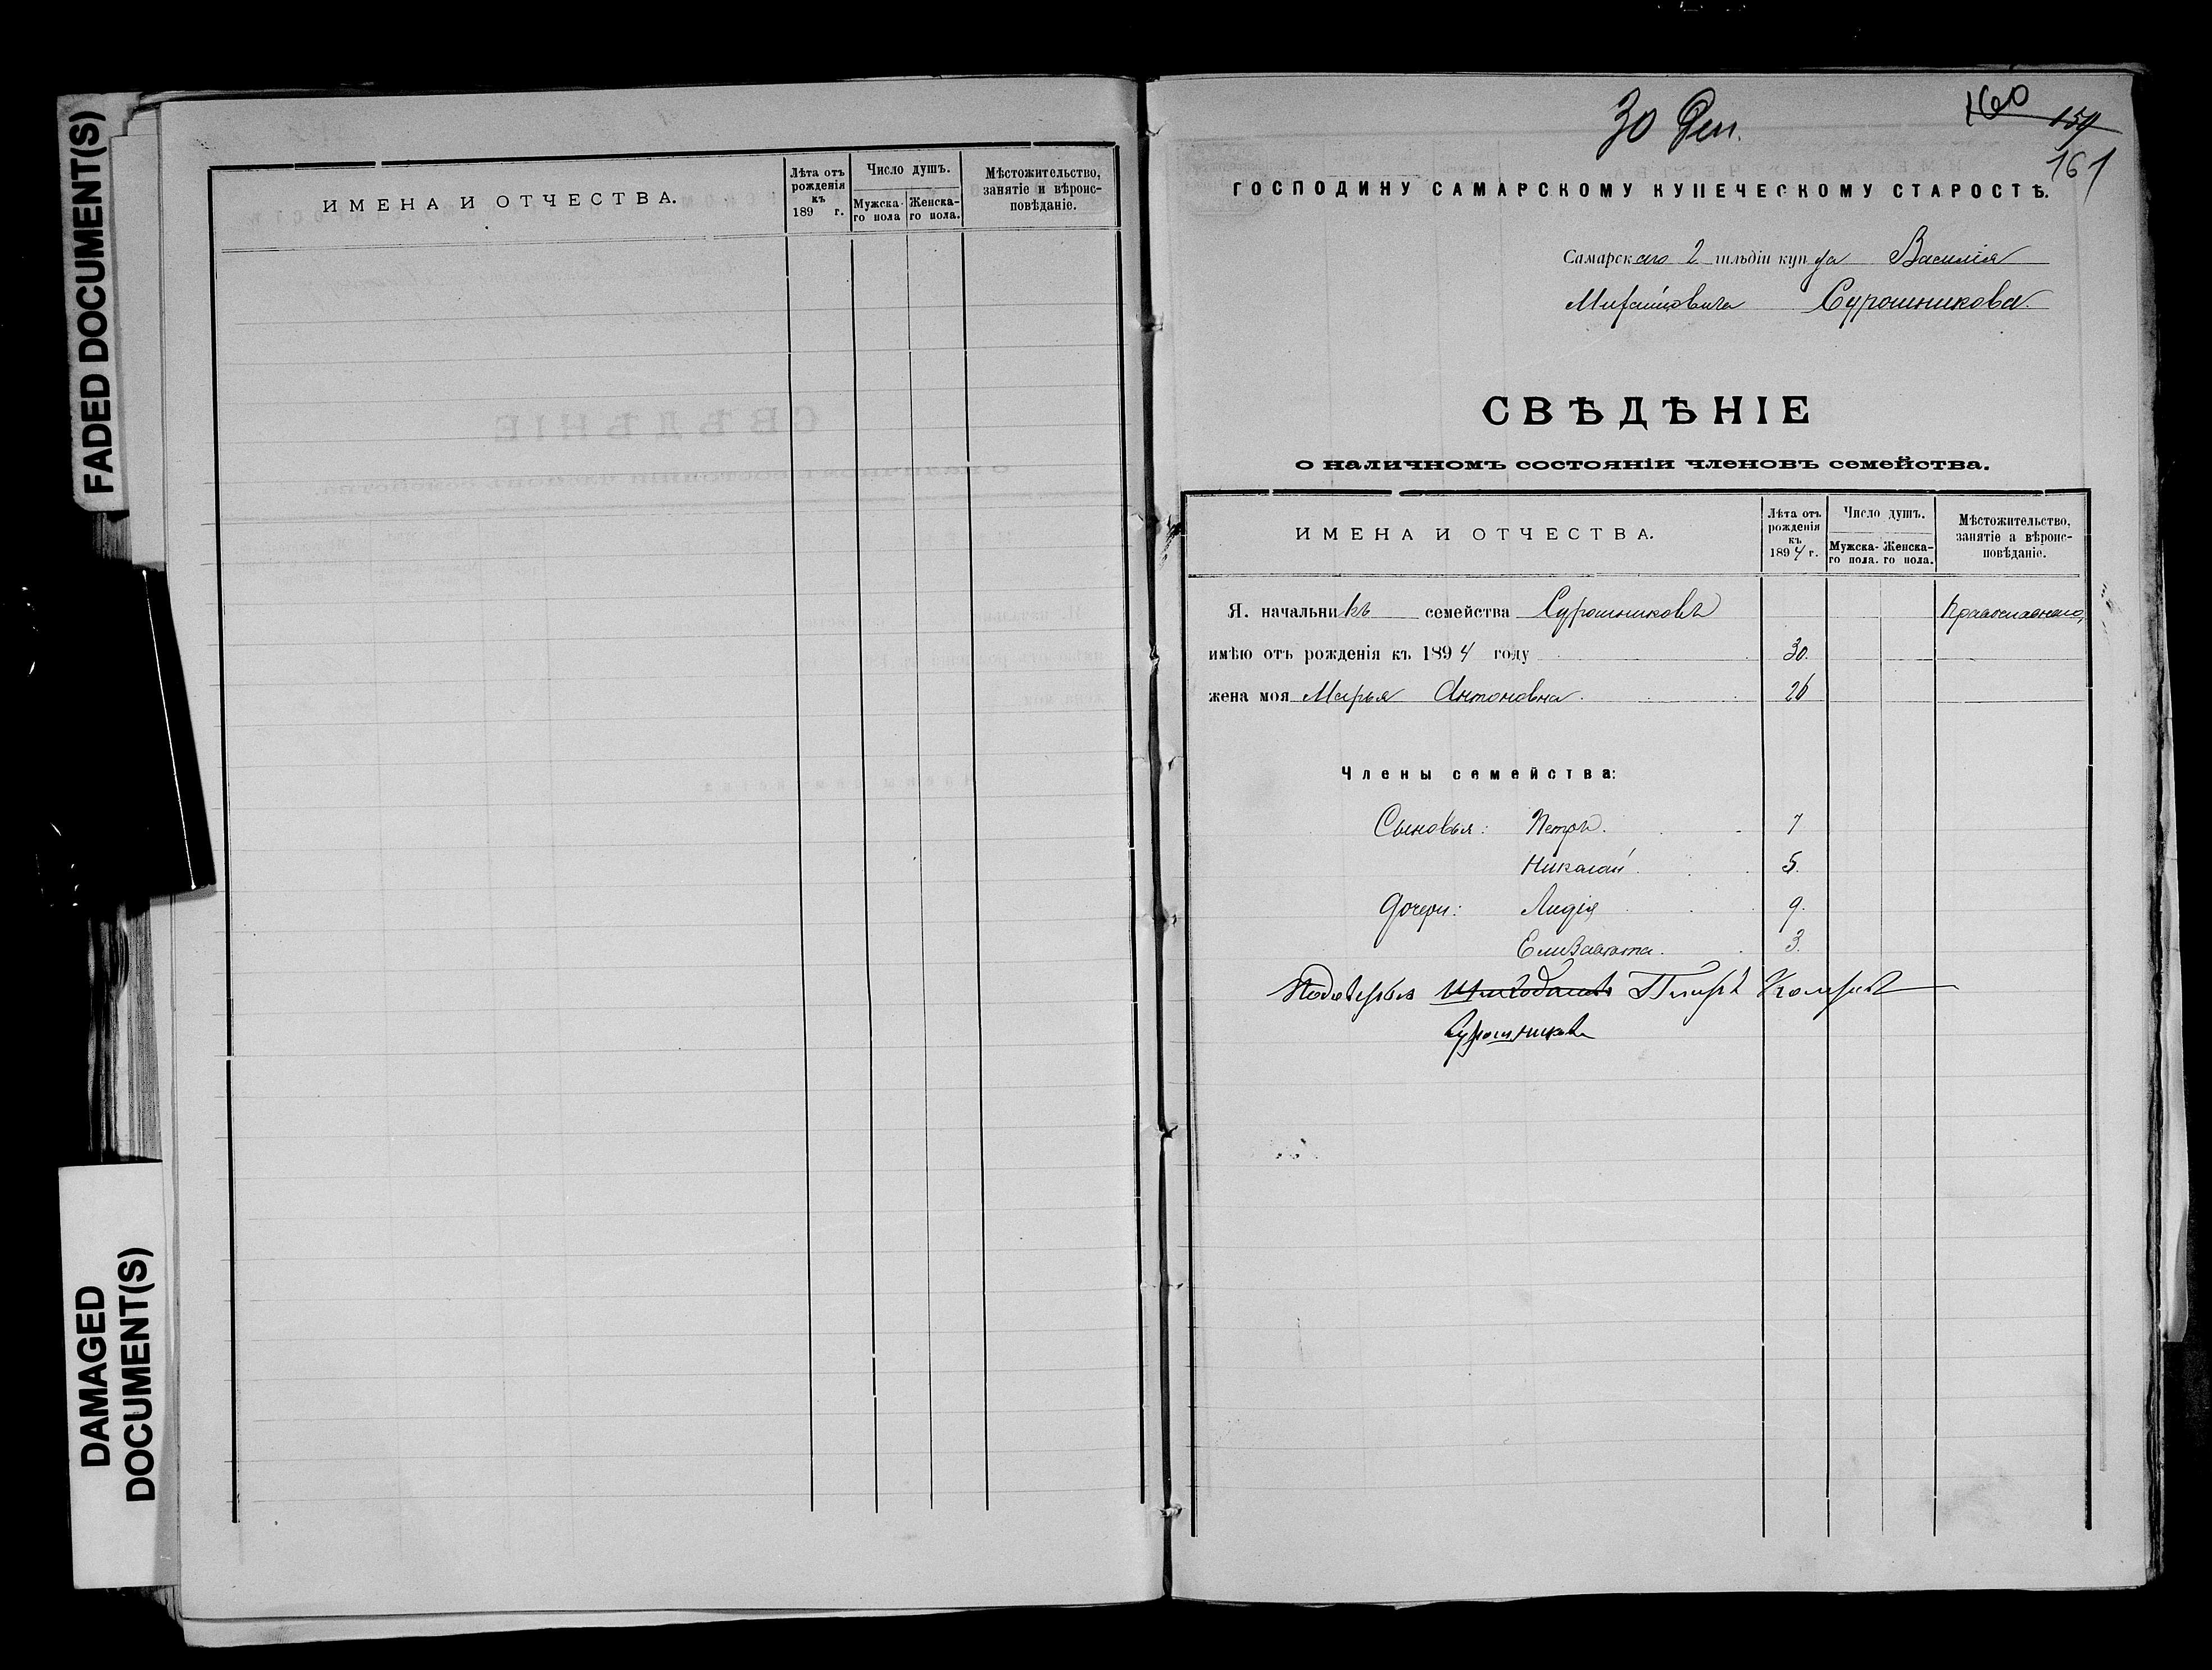 FADED DOCUMENT(S)
DAMAGED
DOCUMENT(S)
ИМЕНА И ОТЧЕСТВА.
Лѣта отъ
рожденія
къ
189 г.
Число душъ.
Мужска-
го пола
Женска-
го пола.
Мѣстожительство,
занятіе и вѣроис-
повѣданіе.
30 Ден.
160 159
161
ГОСПОДИНУ САМАРСКОМУ КУПЕЧЕСКОМУ СТАРОСТѢ.
Самарскаго 2 гильдіи купца Василія
Сурошникова.
СВѢДѢНІЕ
о наличномъ состояніи членовъ семейства.
ИМЕНА И ОТЧЕСТВА.
Лѣта отъ
рожденія
къ
1894 г.
Число душъ.
Мужска-
го пола.
Женска-
го пола.
Мѣстожительство,
занятіе а вѣроис-
повѣданіе.
Я. начальникъ семейства Сурошниковъ Православнаго,
имѣю отъ рожденія къ 1894 году 30.
жена моя Марья Антоновна. 26
Члены семейства:
Сыновья: Петръ. 7
Николай. 5.
Дочери: Лидія 9.
Елизавета. 3.
Сурошников